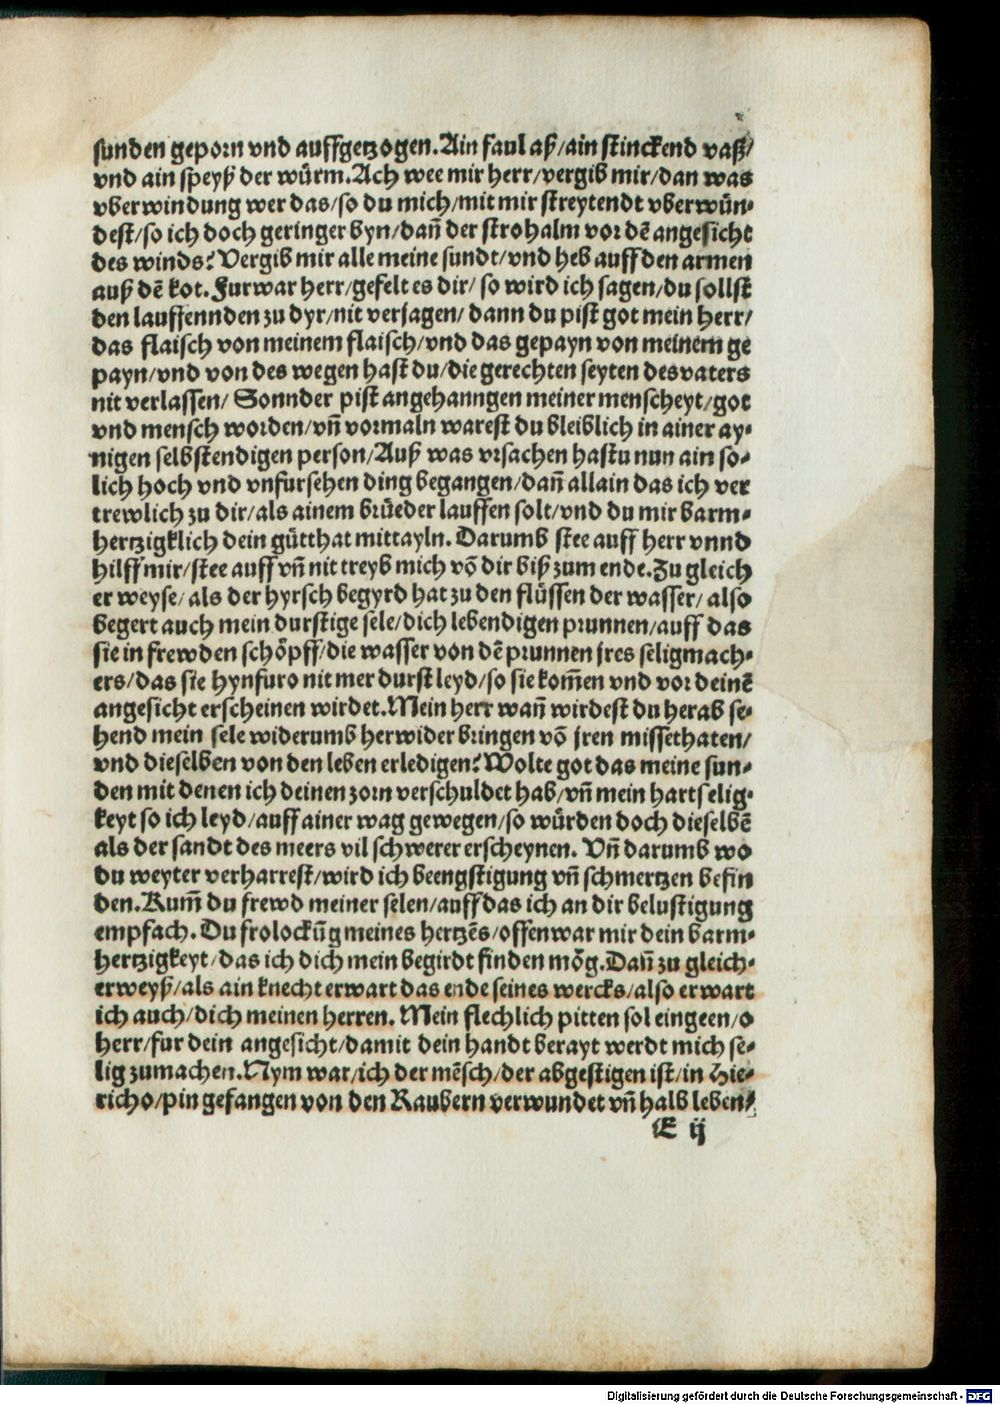 sunden geporn vnd auffgetzogen. Ain faul aß/ain stinckend vaß/
vnd ain speyß der würm. Ach wee mir herr/vergib mir/dan was
vberwindung wer das/so du mich/mit mir streytendt vberwün⸗
dest/so ich doch geringer byn/dañ der strohalm vor dē angesicht
des winds? Vergib mir alle meine sundt/vnd heb auff den armen
auß dē kot. Furwar herr/gefelt es dir/ so wird ich sagen/du sollst
den lauffennden zu dyr/nit verjagen/ dann du pist got mein herr/
das flaisch von meinem flaisch/vnd das gepayn von meinem ge
payn/vnd von des wegen hast du/die gerechten seyten des vaters
nit verlassen/ Sonnder pist angehanngen meiner menscheyt/got
vnd mensch worden/vñ vormaln warest du bleiblich in ainer ay⸗
nigen selbstendigen person/Auß was vrsachen hastu nun ain so⸗
lich hoch vnd vnfursehen ding begangen/dañ allain das ich ver
trewlich zu dir/als ainem brüeder lauffen solt/vnd du mir barm⸗
hertzigklich dein gütthat mittayln. Darumb stee auff herr vnnd
hilff mir/stee auff vñ nit treyb mich vō dir biß zum ende. Zu gleich
er weyse/ als der hyrsch begyrd hat zu den flüssen der wasser/ also
begert auch mein durstige sele/dich lebendigen prunnen/auff das
sie in frewden schöpff/die wasser von dē prunnen jres seligmach⸗
ers/das sie hynfuro nit mer durst leyd/so sie kom̃en vnd vor deinē
angesicht erscheinen wirdet. Mein herr wañ wirdest du herab se⸗
hend mein sele widerumb herwider bringen vō jren missethaten/
vnd dieselben von den leben erledigen? Wolte got das meine sun⸗
den mit denen ich deinen zorn verschuldet hab/vñ mein hartselig⸗
keyt so ich leyd/auff ainer wag gewegen/so würden doch dieselbē
als der sandt des meers vil schwerer erscheynen. Vñ darumb wo
du weyter verharrest/wird ich beengstigung vñ schmertzen befin
den. Kum̃ du frewd meiner selen/auff das ich an dir belustigung
empfach. Du frolockūg meines hertzēs/offenwar mir dein barm⸗
hertzigkeyt/das ich dich mein begirdt finden mög. Dañ zu gleich⸗
erweyß/als ain knecht erwart das ende seines wercks/also erwart
ich auch/dich meinen herren. Mein flechlich pitten sol eingeen/o
herr/fur dein angesicht/damit dein handt berayt werdt mich se⸗
lig zumachen. Nym war/ich der mēsch/der abgestigen ist/in Hie⸗
richo/pin gefangen von den Raubern verwundet vñ halb leben⸗
E ij
Digitalisierung gefördert durch die Deutsche Forschungsgemeinschaft - DFG